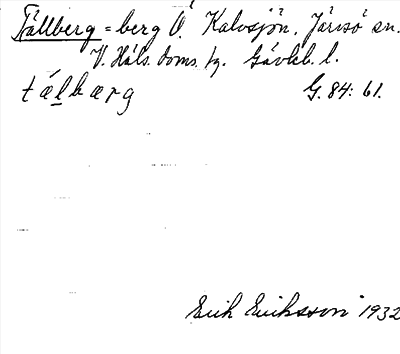 Tällberg = berg Ö. Kalvsjön, Järvsö sn.
V. Häls. doms. hg. Gävleb. l.
tälbærg G. 84: 61.
Erik Eriksson 1932